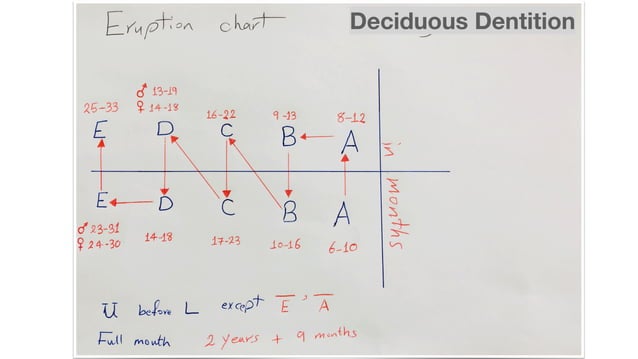 Eruption chart
Deciduous Dentition
♂ 13-19
25-33 ♀ 14-18 16-22 9-13 8-12
E D C B A
in months
E D C B A
♂ 23-31
♀ 24-30 14-18 17-23 10-16 6-10
U before L except E , A
Full mouth 2 years + 9 months